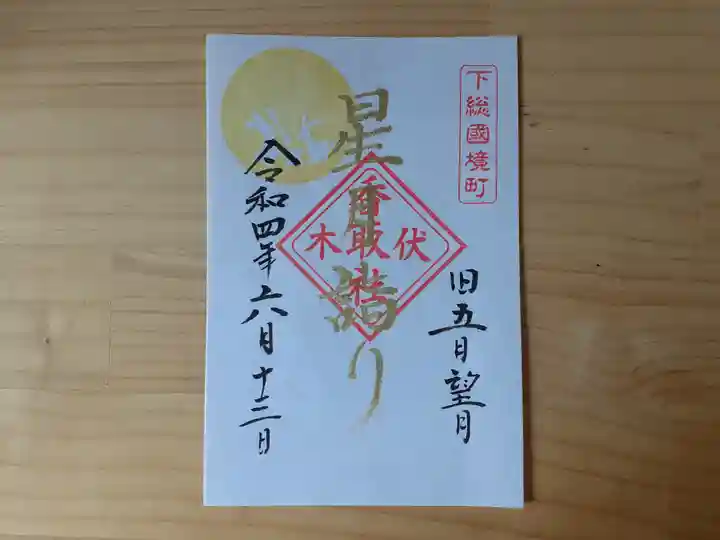 下総國境町
旧五日望月
星月詣り
伏木
香取社
令和四年六月十三日